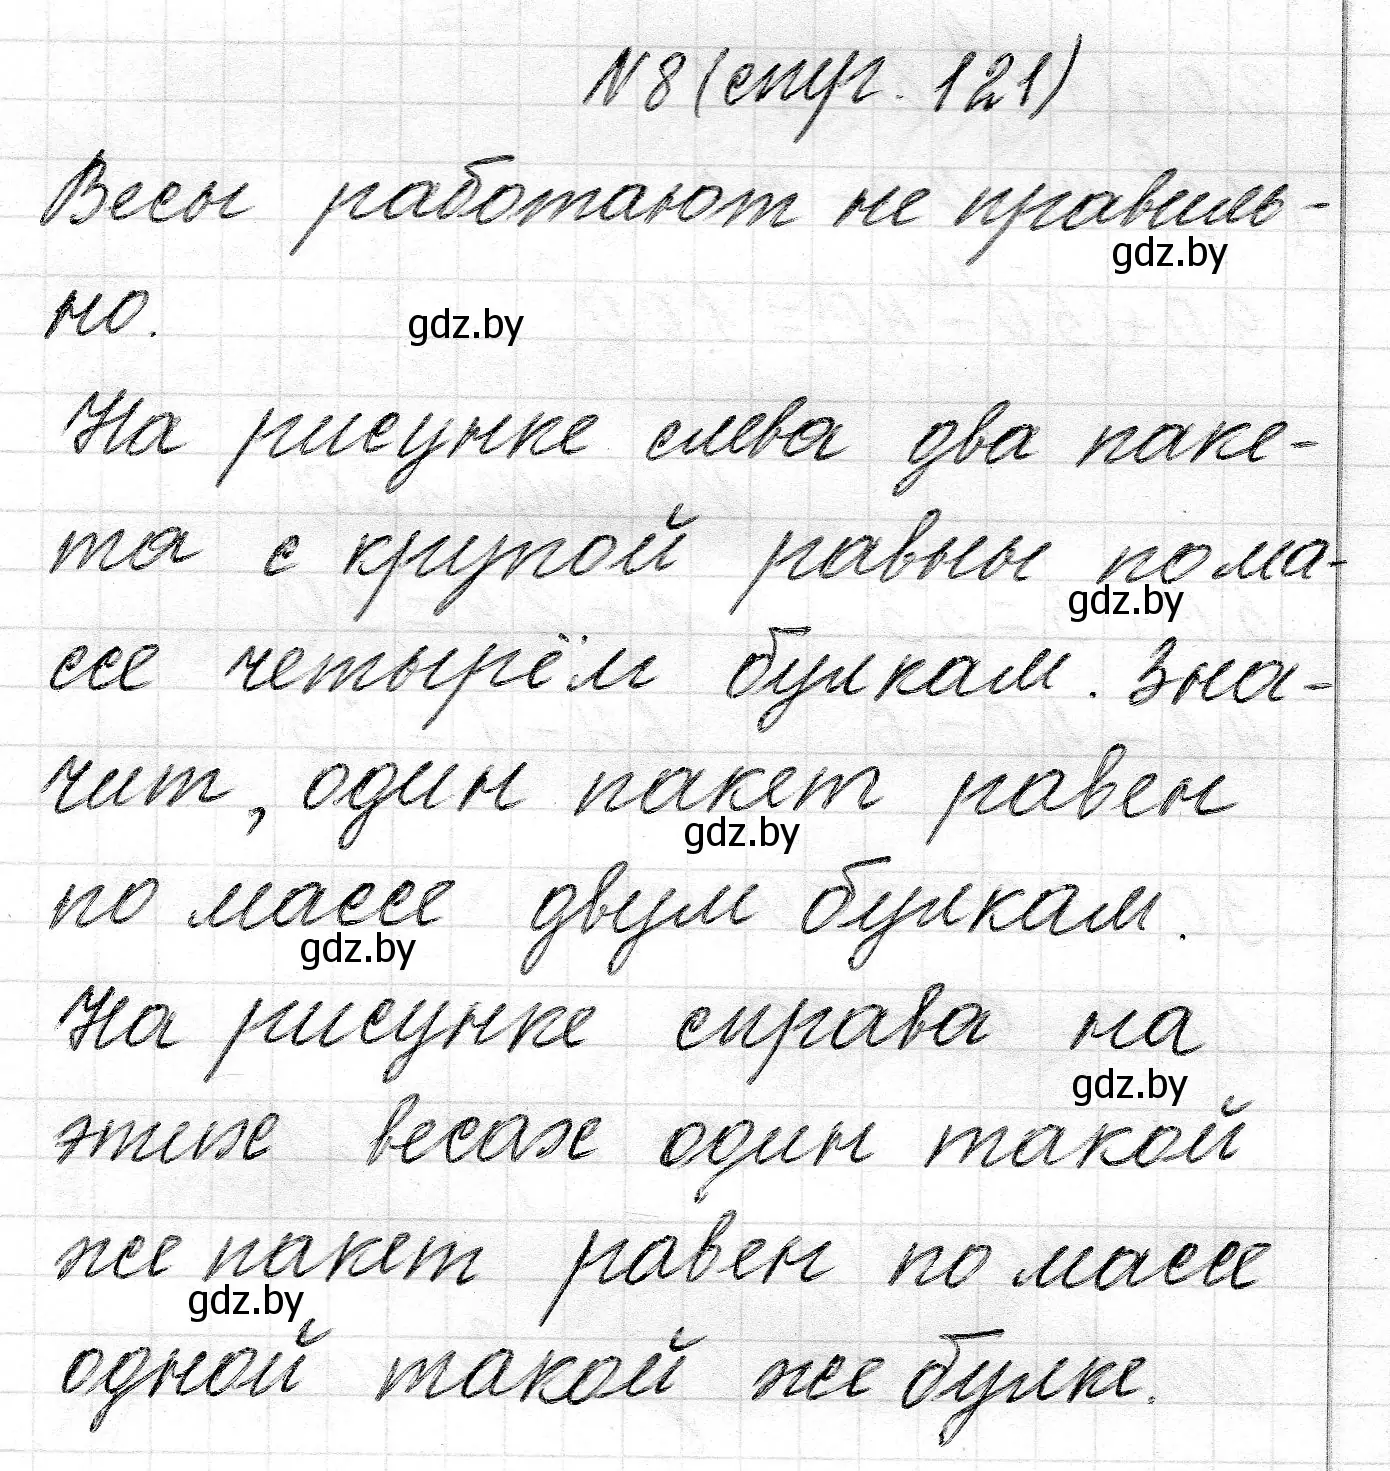 №8 (стр. 121)
Весы работают не правиль-
gdz.by
но.
gdz.by
На рисунке слева два паке-
та с крупой равны по ма-
gdz.by
ссе четырём булкам. Зна-
чит, один пакет равен
gdz.by
по массе двум булкам.
gdz.by
На рисунке справа на
gdz.by
этих весах один такой
же пакет равен по массе
gdz.by
одной такой же булке.